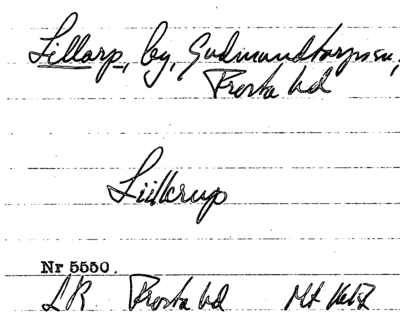 Lillarp, by, Gudmundtorps sn,
Frosta hd
Lüllerup
Nr 5550.
LR Frosta hd